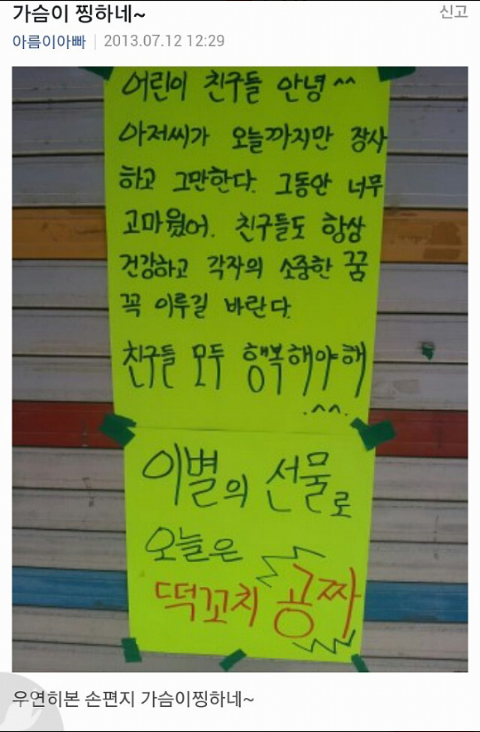 가슴이 찡하네~
신고
아름이아빠
2013.07.12 12:29
어린이 친구들 안녕^^
아저씨가 오늘까지만 장사
하고 그만한다. 그동안 너무
고마웠어. 친구들도 항상
건강하고 각자의 소중한 꿈
꼭 이루길 바란다.
친구들 모두 행복해야해
.^^.
이별의 선물로
오늘은
떡꼬치 공짜
우연히본 손편지 가슴이찡하네~